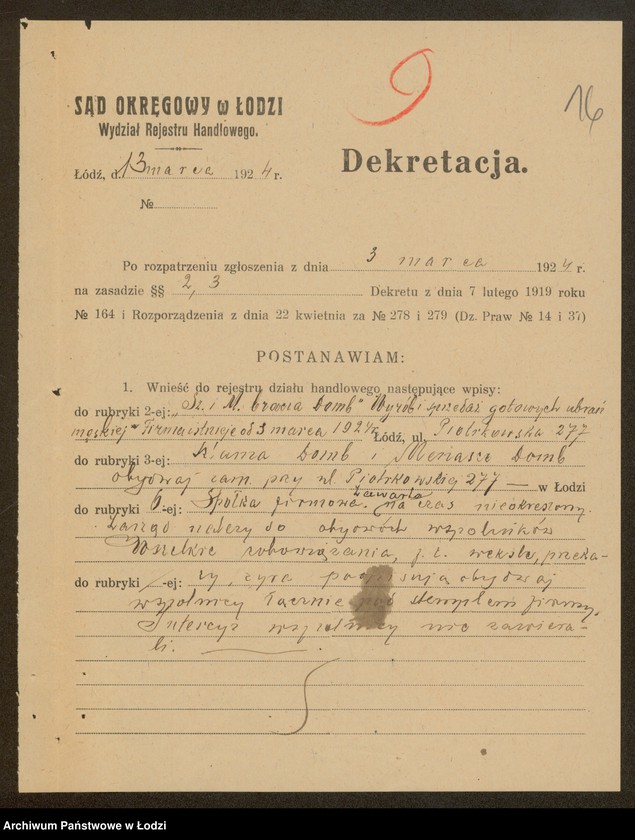 9
16
SĄD OKRĘGOWY w ŁODZI
Wydział Rejestru Handlowego.
Łódź, d. 13 marca 1924 r.
№
Dekretacja.
Po rozpatrzeniu zgłoszenia z dnia 3 marca 1924 r.
na zasadzie §§ 2, 3 Dekretu z dnia 7 lutego 1919 roku
№ 164 i Rozporządzenia z dnia 22 kwietnia za № 278 i 279 (Dz. Praw № 14 i 37)
POSTANAWIAM:
1. Wnieść do rejestru działu handlowego następujące wpisy:
do rubryki 2-ej: „Sz. i M. bracia Domb" Wyrób i sprzedaż gotowych ubrań
męskiej" Firma istnieje od 3 marca 1924 r. Łódź, ul. Piotrkowska 277
do rubryki 3-ej: Domb i Menasze Domb
obydwaj zam. przy ul. Piotrkowskiej 277 — w Łodzi
do rubryki 6-ej: Spółka firmowa zawarta na czas nieokreślony.
Zarząd należy do obydwóch wspólników
Wszelkie zobowiązania, j. t. weksle, przeka-
do rubryki -ej: zy, żyra podpisują obydwaj
wspólnicy łącznie pod stemplem firmy.
Intercyz wspólnicy nie zawiera-
li.
Archiwum Państwowe w Łodzi